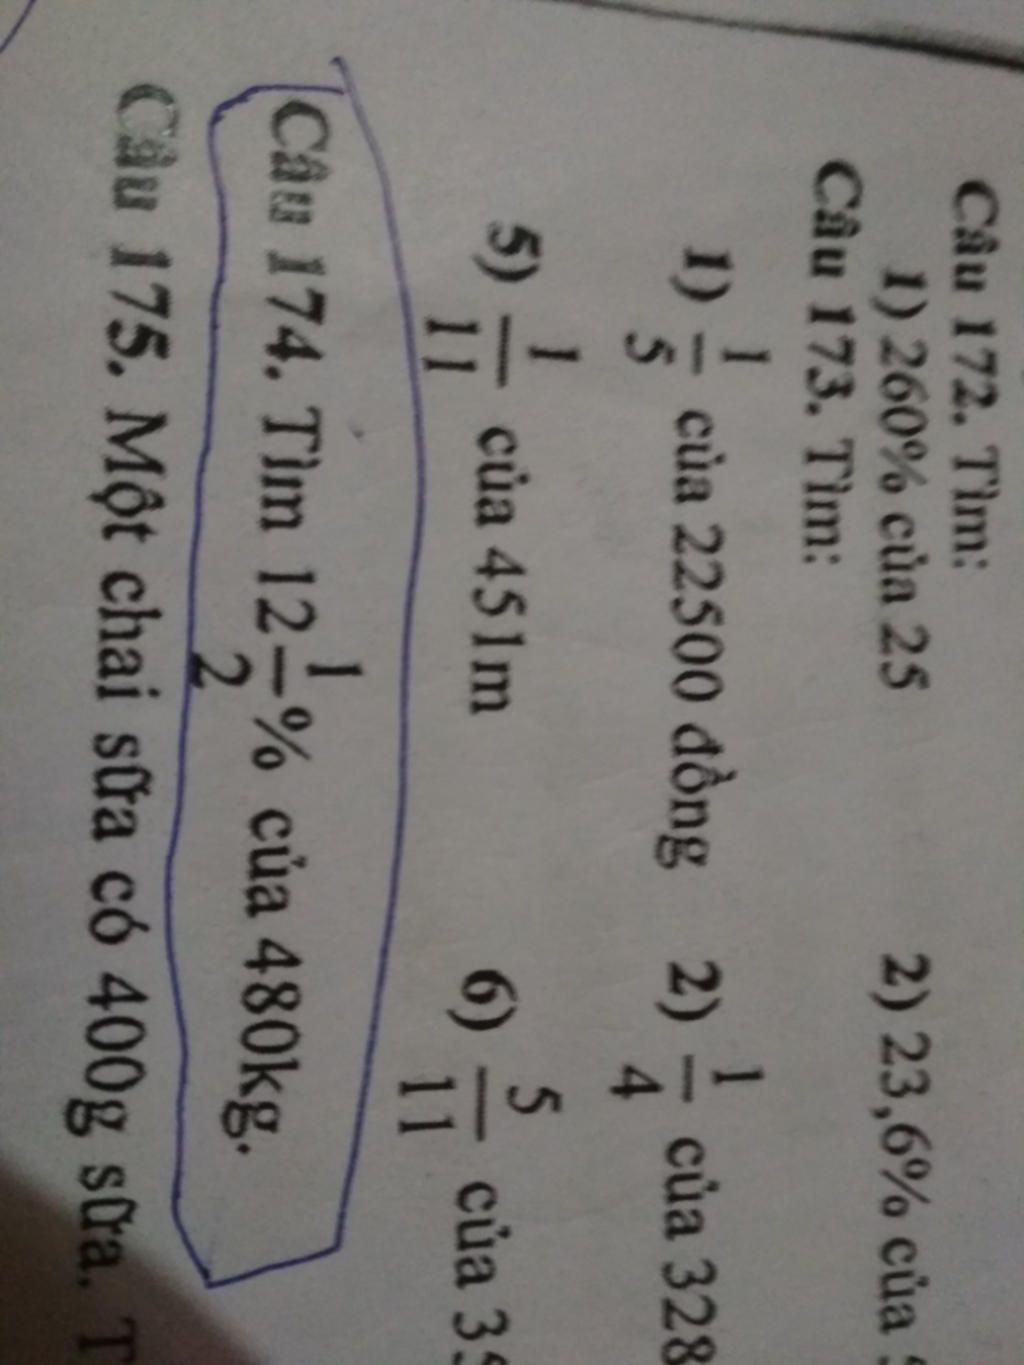 Câu 172. Tìm:
1) 260% của 25 2) 23,6% của
Câu 173. Tìm:
1) 1/5 của 22500 đồng 2) 1/4 của 328
5) 1/11 của 451m 6) 5/11 của
Câu 174. Tìm 12 1/2 % của 480kg.
Câu 175. Một chai sữa có 400g sữa. T